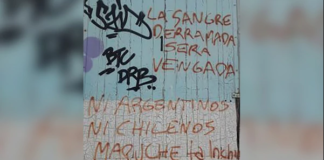 LA SANGRE
DERRAMADA
SERA
VENGADA
BTC
DRB
NI ARGENTINOS
NI CHILENOS
MAPUCHE